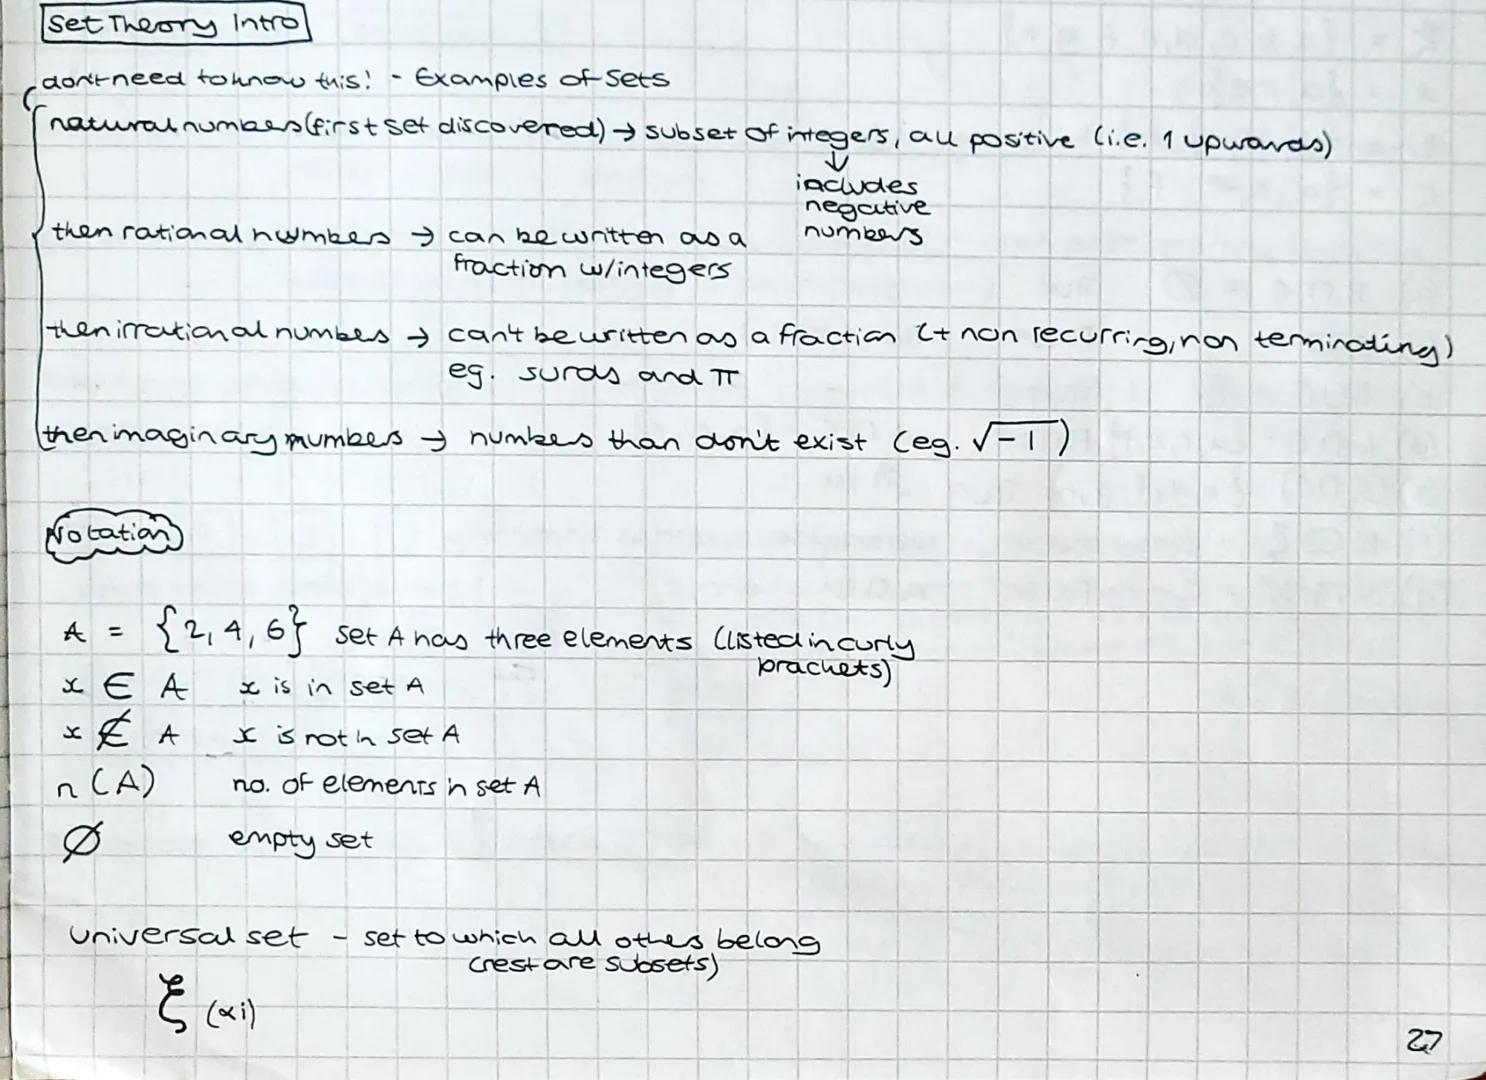 Set Theory Intro
don't need to know this! - Examples of Sets
natural numbers (first set discovered) → subset of integers, all positive (i.e. 1 upwards)
↓
includes
negative
numbers
then rational numbers → can be written as a
fraction w/integers
then irrational numbers → can't be written as a fraction (+ non recurring, non terminating)
eg. surds and π
then imaginary numbers → numbers than don't exist (eg. √-1)
Notation
A = {2, 4, 6} set A has three elements (listed in curly
brackets)
x ∈ A x is in set A
x ∉ A x is not in set A
n (A) no. of elements in set A
∅ empty set
universal set - set to which all others belong
(rest are subsets)
ξ (xi)
27